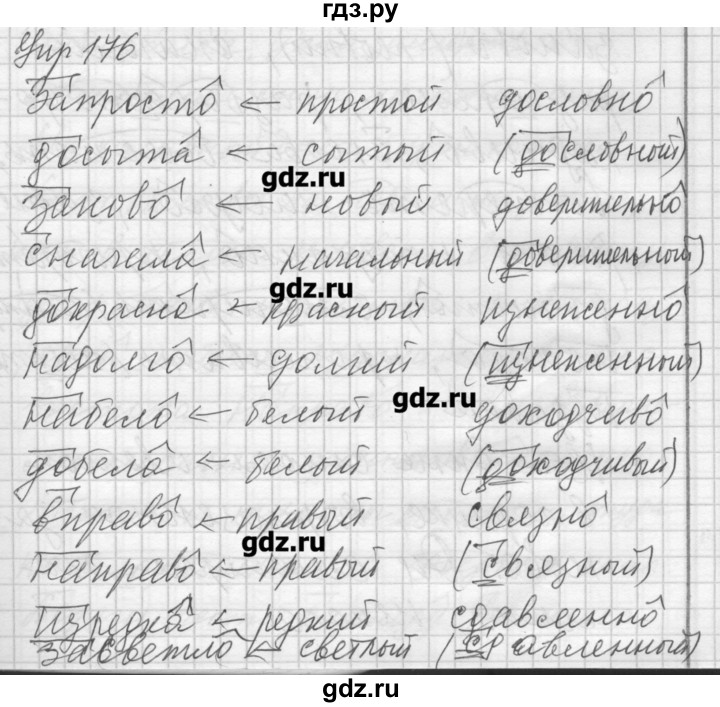 гдз.ру
Упр 176
запросто ← простой дословно
досыта ← сытый (дословный)
gdz.ru
заново ← новый доверительно
сначала ← начальный (доверительный)
gdz.ru
докрасна ← красный изнеженно
надолго ← долгий (изнеженный)
gdz.ru
набело ← белый доходчиво
добела ← белый (доходчивый)
вправо ← правый связно
gdz.ru
направо ← правый (связный)
изредка ← редкий сдавленно
засветло ← светлый (сдавленный)
gdz.ru